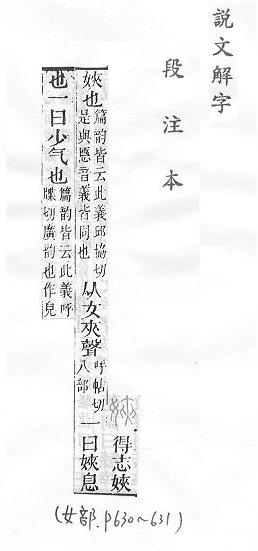 説文解字
段注本
得志㛍
㛍也篇韵皆云此義邱協切是與㥦音義皆同也从女夾聲呼帖切八部一曰㛍息
也一曰少气也篇韵皆云此義呼牒切廣韵也作皃
(女部.P630~631)